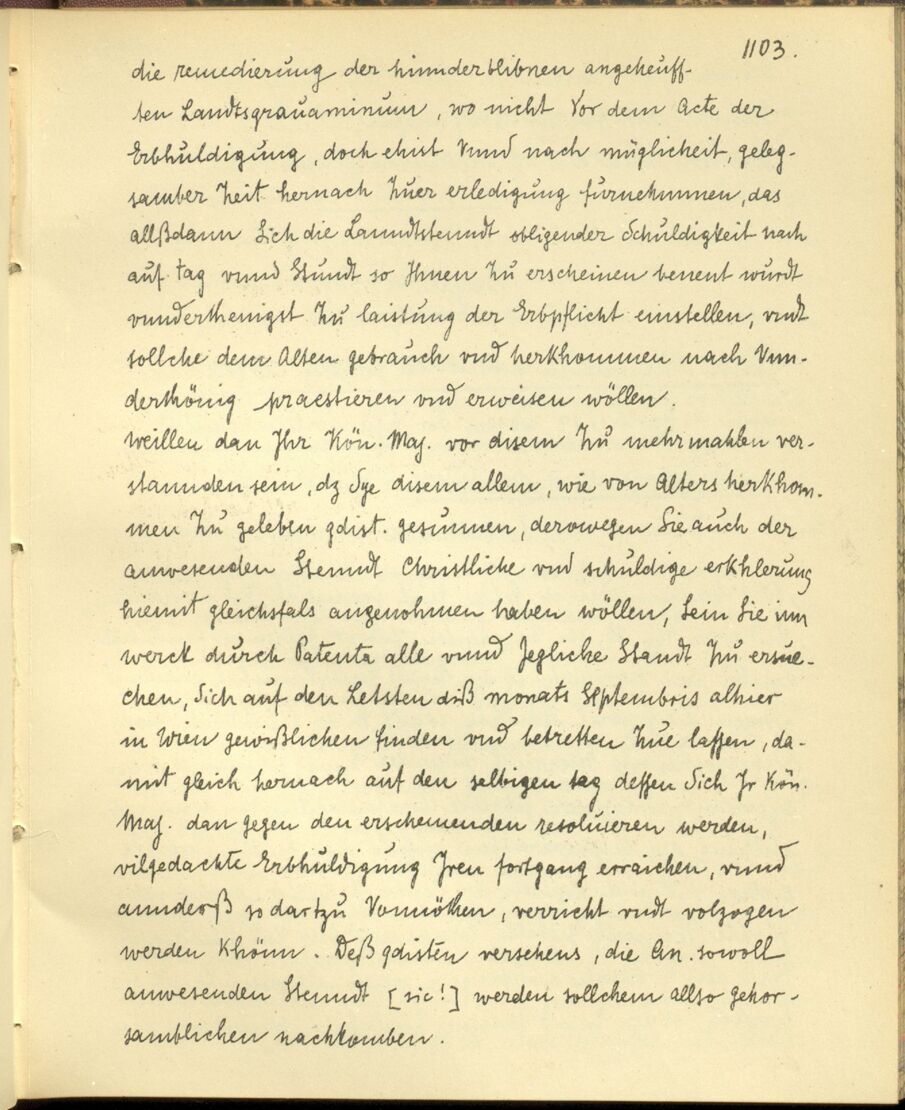 1103.
die remedierung der hinnderblibnen angeheuff-
ten Landtsgrauaminum, wo nicht Vor dem Acte der
Erbhuldigung, doch ehist Vnnd nach müglicheit, geleg-
samber Zeit hernach Zuer erledigung fürnehmmen, das
allßdann Sich die Lanndtstenndt obligender Schuldigkeit nach
auf tag vnnd Stundt so Ihnen Zu erscheinen benent wurdt
vnnderthenigst Zu laistung der Erbpflicht einstellen, vndt
sollche dem Alten gebrauch vnd herkhommen nach Vnn-
derthönig praestieren vnd erweisen wöllen.
Weillen dan Ihr Kön. May. vor disem Zu mehrmahlen ver-
stannden sein, dz Sye disem allem, wie von Alters herkhom-
men Zu geleben gdist. gesunnen, derowegen Sie auch der
anwesenden Stenndt Christliche vnd schuldige erkhlerung
hiemit gleichsfals angenohmen haben wöllen, Sein Sie im
werck durch Patenta alle vnnd Jegliche Standt Zu ersue-
chen, Sich auf den Letsten diß monats Septembris alhier
in Wien gewißlichen finden vnd betretten Zue lassen, da-
mit gleich hernach auf den selbigen tag dessen Sich Ir Kön.
May. dan gegen den erscheinenden resoluieren werden,
vilgedachte Erbhuldigung Iren fortgang erraichen, vnnd
annderß so dartzu Vonnöthen, verricht vndt volzogen
werden Khönn. Deß gdisten versehens, die An. sowoll
anwesenden Stenndt [sic!] werden sollchem allso gehor-
samblichen nachkomben.